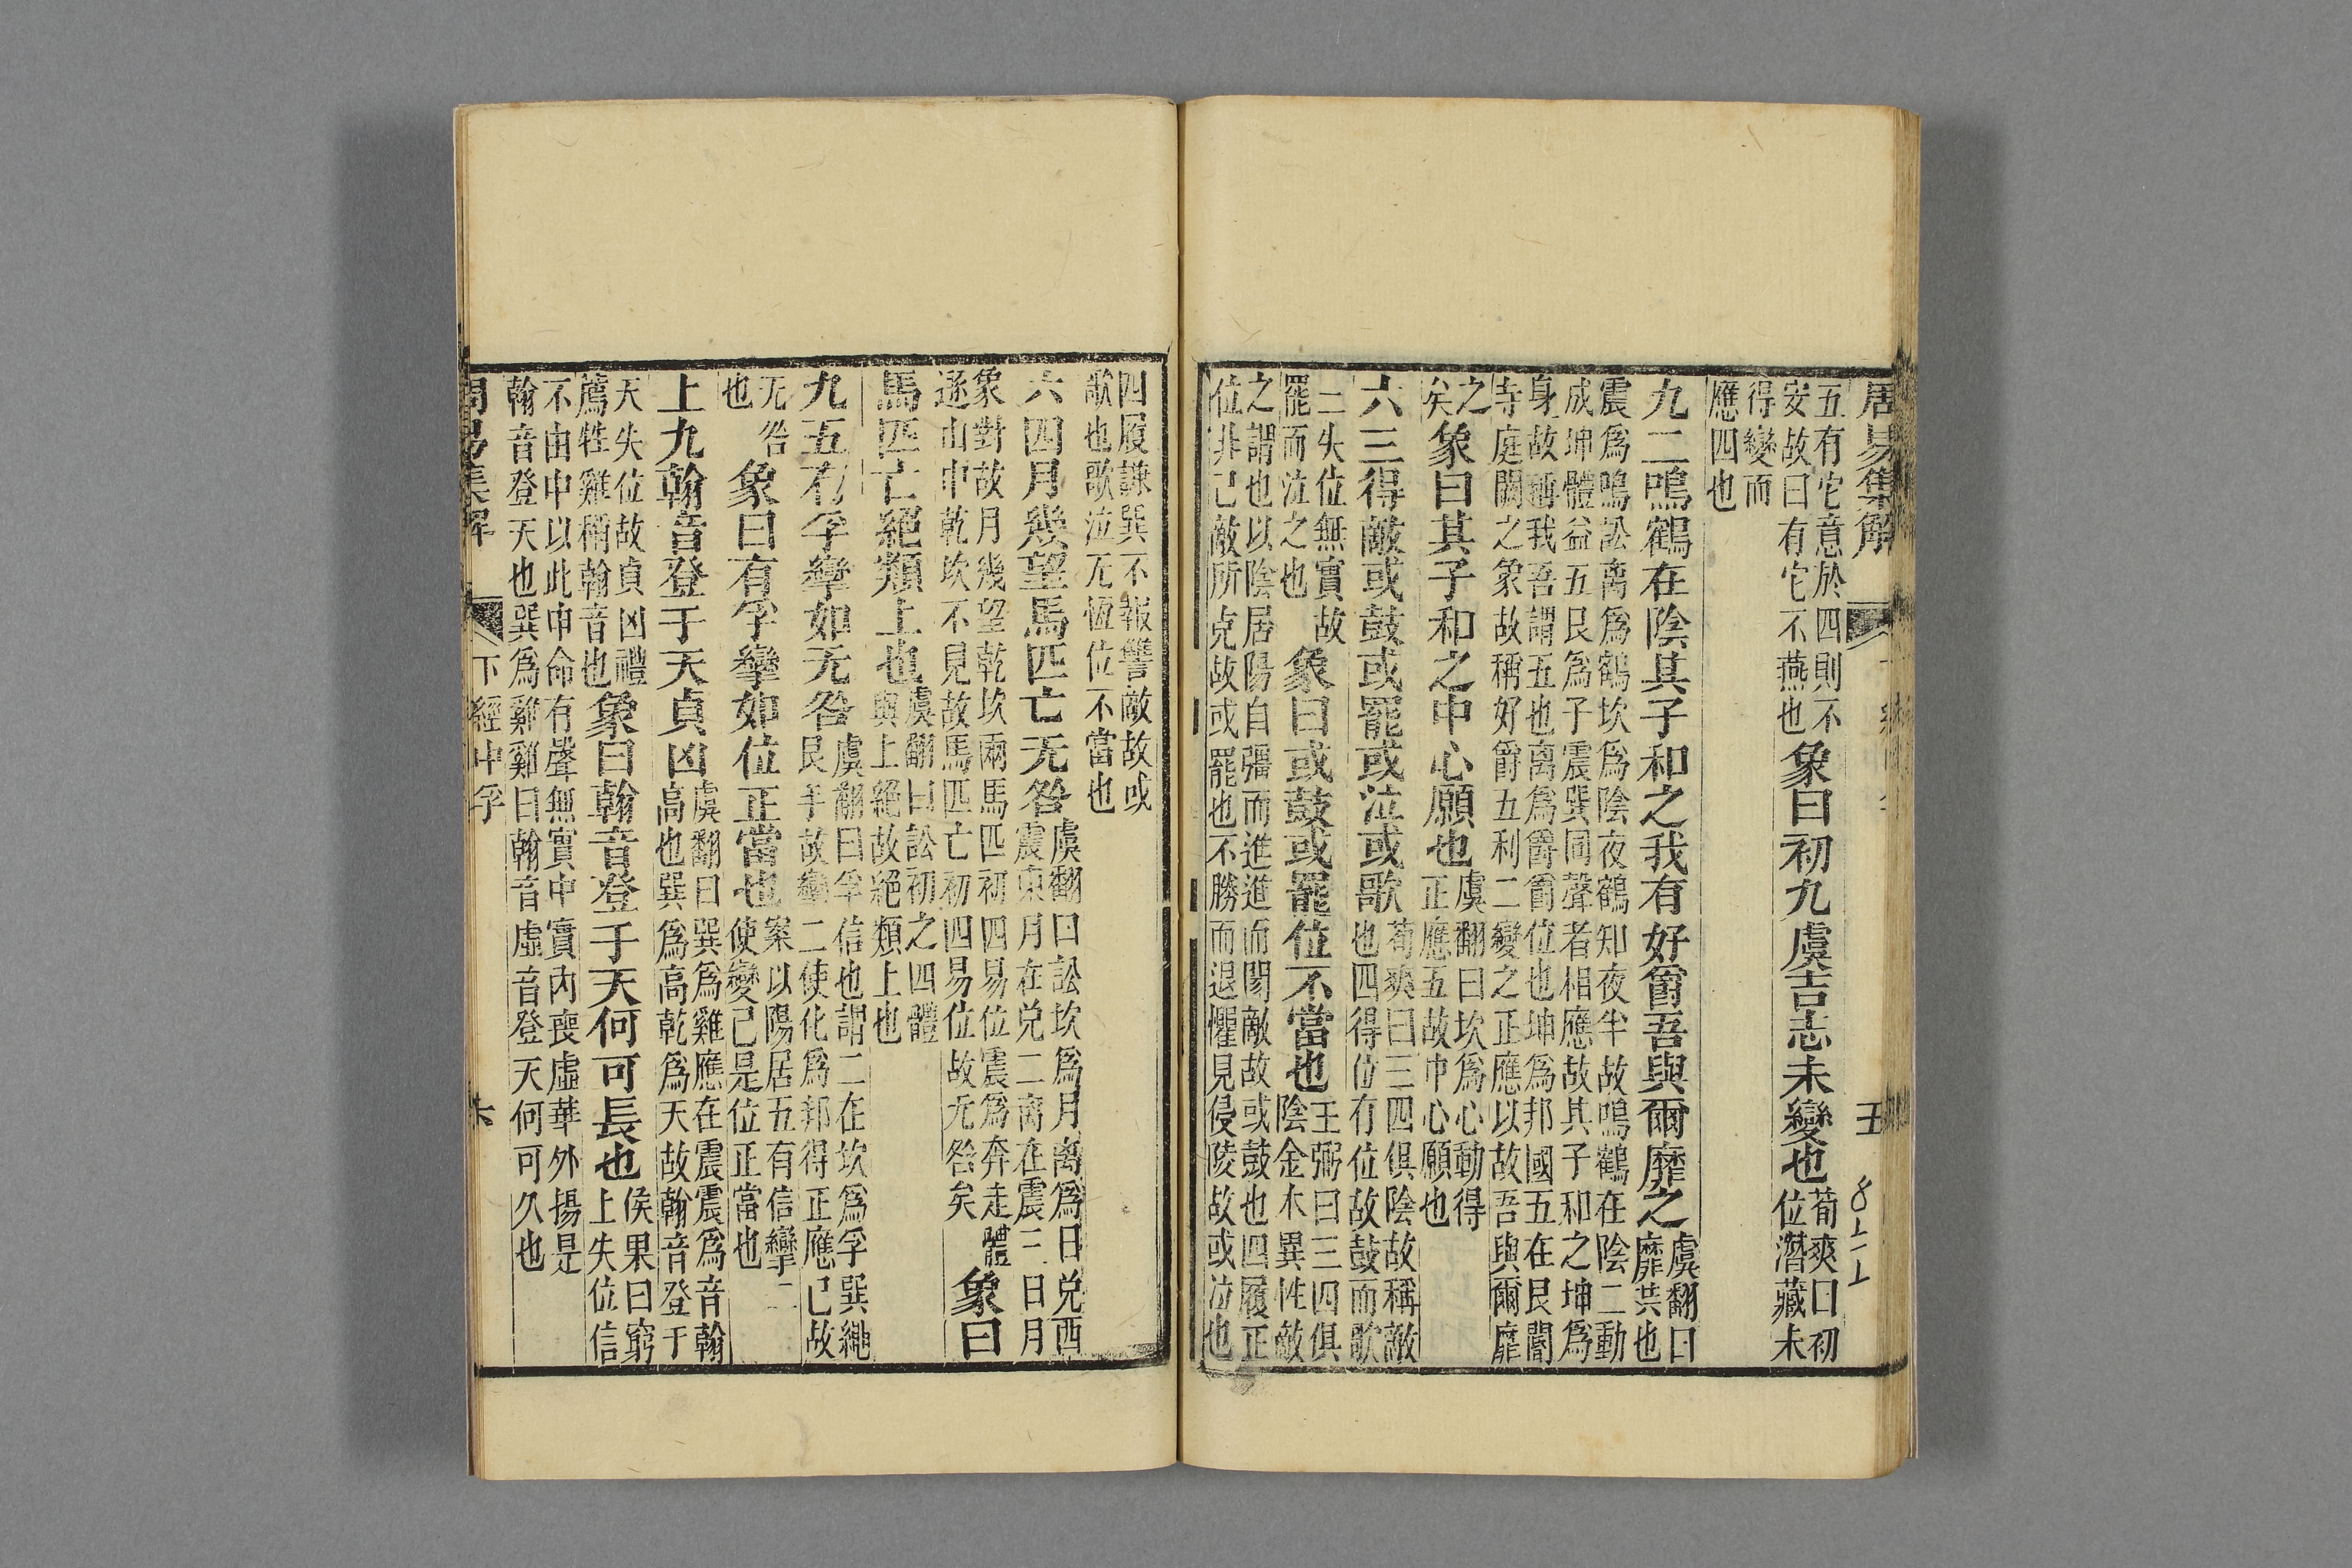 周易集解 五
五有它意於四則不
安故曰有它不燕也
象曰初九虞吉志未變也
荀爽曰初
位潛藏未
得變而
應四也
九二鳴鶴在陰其子和之我有好爵吾與爾靡之
虞翻曰
靡共也
震爲鳴訟离爲鶴坎爲陰夜鶴知夜半故鳴鶴在陰二動
成坤體益五艮爲子震巽同聲者相應故其子和之坤爲
身故稱我吾謂五也离爲爵爵位也坤爲邦國五在艮閽
寺庭闕之象故稱好爵五利二變之正應以故吾與爾靡
之
矣
象曰其子和之中心願也
虞翻曰坎爲心動得
正應五故中心願也
六三得敵或鼓或罷或泣或歌
荀爽曰三四俱陰故稱敵
也四得位有位故鼓而歌
三失位無實故
罷而泣之也
象曰或鼓或罷位不當也
王弼曰三四俱
陰金木異性敵
之謂也以陰居陽自彊而進進而閡敵故或鼓也四履正
位非己敵所克故或罷也不勝而退懼見侵陵故或泣也
四履謙巽不報讐敵故或
歌也歌泣无恆位不當也
六四月幾望馬匹亡无咎
虞翻曰訟坎爲月离爲日兌西
震東月在兌二离在震三日月
象對故月幾望乾坎兩馬匹初四易位震爲奔走體
遂山中乾坎不見故馬匹亡初四易位故无咎矣
象曰
馬匹亡絕類上也
虞翻曰訟初之四體
與上絕故絕類上也
九五有孚攣如无咎
虞翻曰孚信也謂二在坎爲孚巽繩
艮手故攣二使化爲邦得正應已故
无咎
也
象曰有孚攣如位正當也
案以陽居五有信攣二
使變己是位正當也
上九翰音登于天貞凶
虞翻曰巽爲雞應在震震爲音翰
高也巽爲高乾爲天故翰音登于
天失位故貞凶禮
薦牲雞稱翰音也
象曰翰音登于天何可長也
侯果曰窮
上失位信
不由中以此申命有聲無實中實內喪虛華外揚是
翰音登天也巽爲雞雞曰翰音虛音登天何可久也
周易集解 下經中孚 六